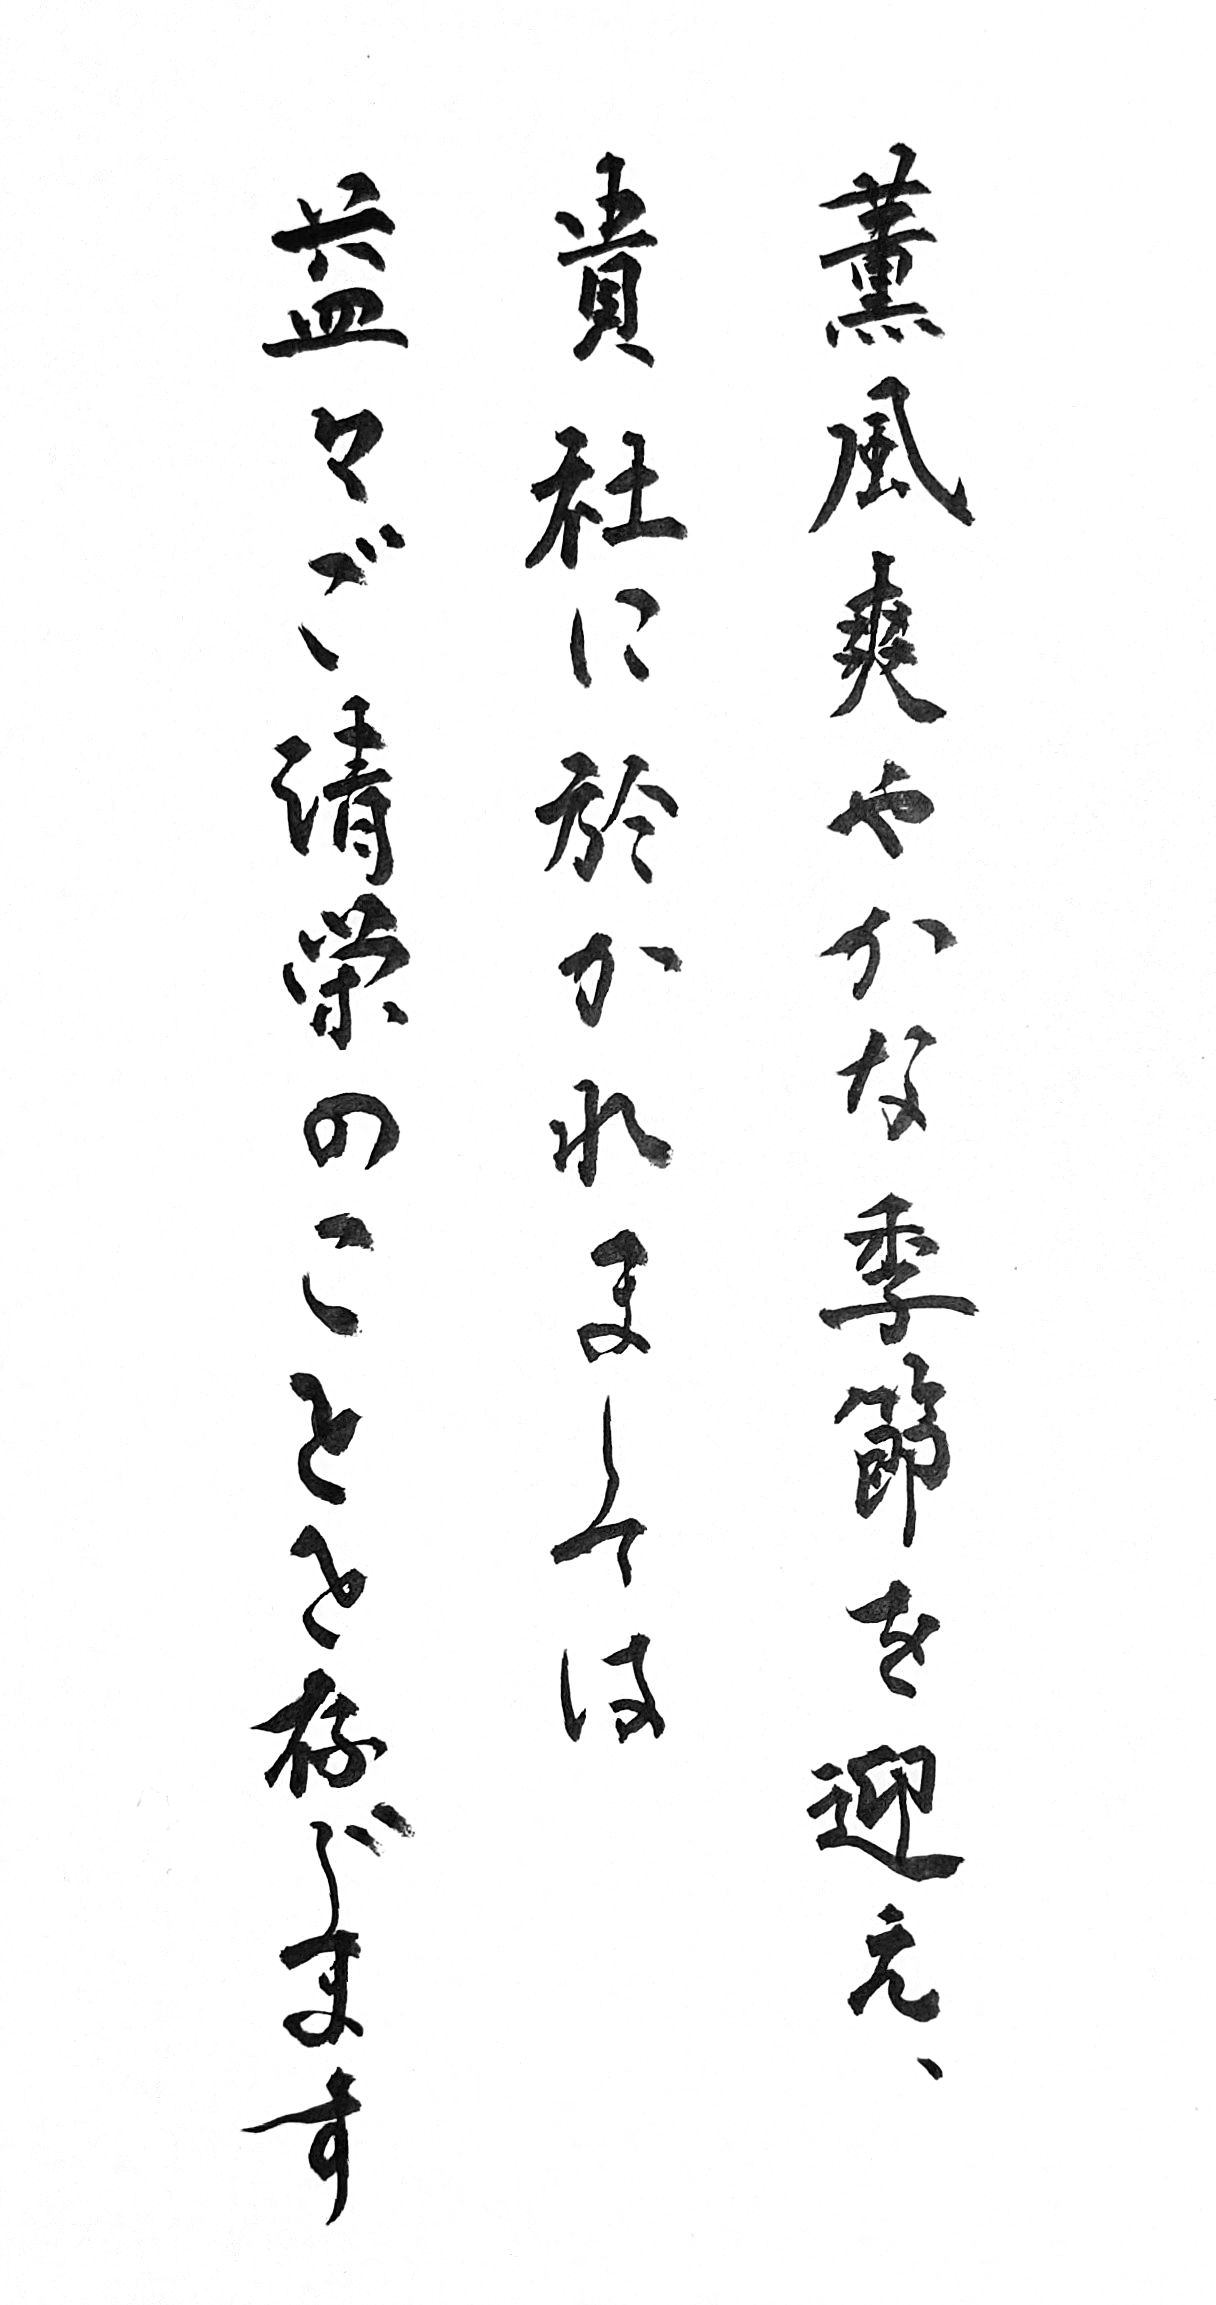 薫風爽やかな季節を迎え、
貴社に於かれましては
益々ご清栄のことと存じます